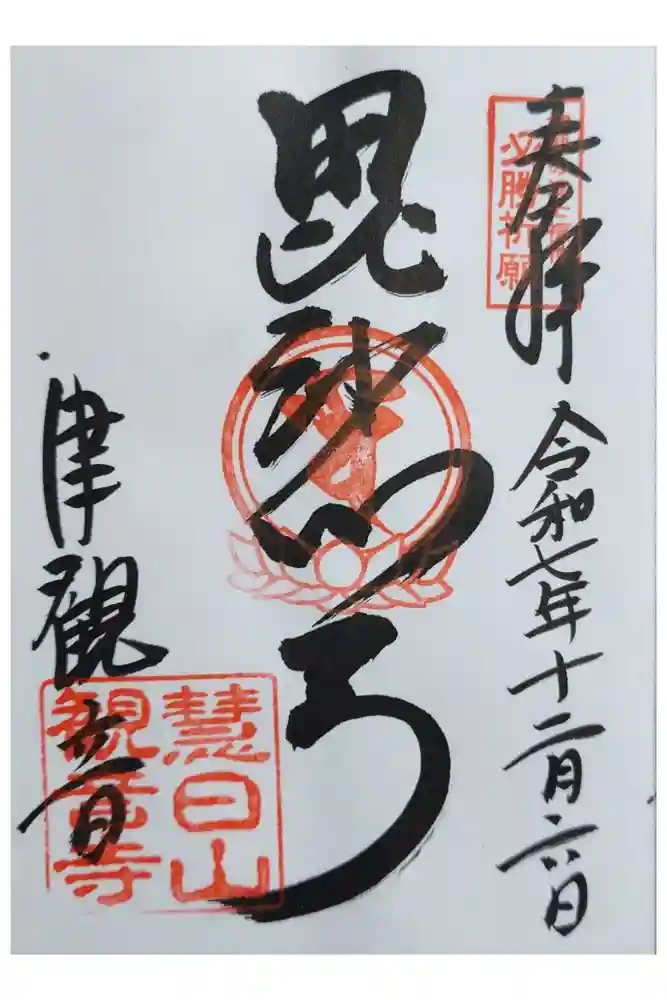 奉拝
必勝祈願
令和七年十二月六日
毘沙門天
津観音
慧日山
観音寺